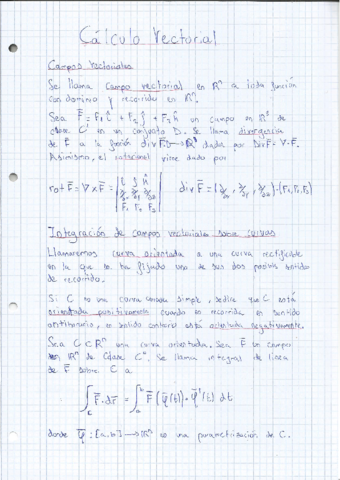 Cálculo Vectorial
Campos vectoriales
Se llama campo vectorial en ℝⁿ a toda función
con dominio y recorrido en ℝⁿ.
Sea F̄ = F₁ î + F₂ ĵ + F₃ k̂ un campo en ℝ³ de
clase C¹ en un conjunto D. Se llama divergencia
de F̄ a la función div F̄: D → ℝ dada por Div F̄ = ∇·F̄.
Asimismo, el rotacional viene dado por
rot F̄ = ∇ × F̄ = | î ĵ k̂ ; ∂/∂x ∂/∂y ∂/∂z ; F₁ F₂ F₃ | div F̄ = (∂/∂x, ∂/∂y, ∂/∂z)·(F₁, F₂, F₃)
Integración de campos vectoriales sobre curvas
Llamaremos curva orientada a una curva rectificable
en la que se ha fijado uno de sus dos posibles sentidos
de recorrido.
Si C es una curva cerrada simple, se dice que C está
orientada positivamente cuando es recorrida en sentido
antihorario, en sentido contrario está orientada negativamente.
Sea C ⊂ ℝⁿ una curva orientada. Sea F̄ un campo
en ℝⁿ de clase C⁰. Se llama integral de línea
de F̄ sobre C a
∫_C F̄·dr̄ = ∫_a^b F̄(φ̄(t))·φ̄'(t) dt
donde φ̄: [a,b] → ℝⁿ es una parametrización de C.